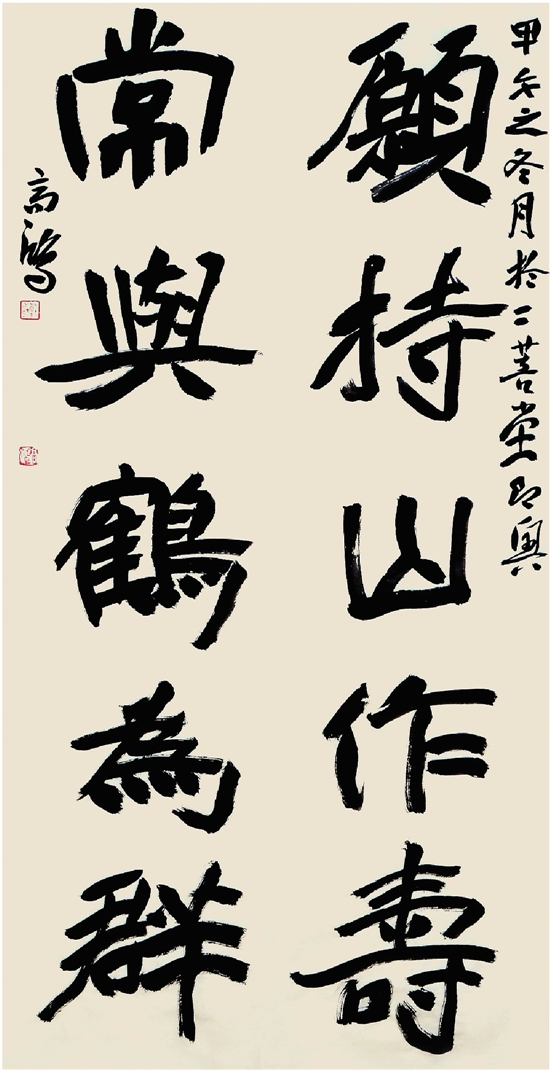 甲午之冬月於二菩堂即興
願持山作壽
常與鶴為群
高鴻